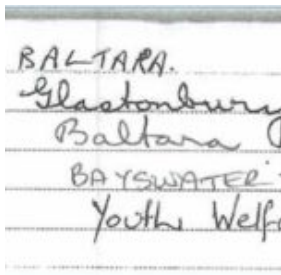 BALTARA.
Glastonbury
Baltara
BAYSWATER
Youth Welf